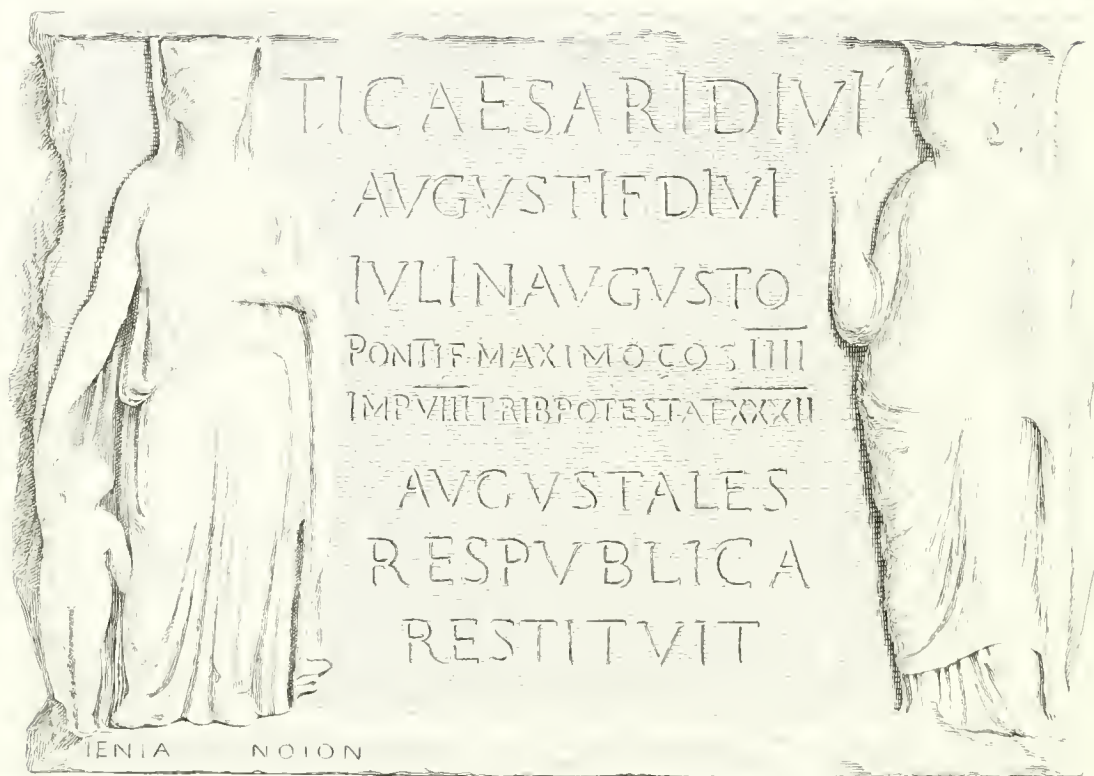 TI CAESARI DIVI
AVGVSTI F DIVI
IVLI N AVGVSTO
PONTIF MAXIMO COS IIII
IMP VIII TRIB POTESTAT XXXII
AVGVSTALES
RESPVBLICA
RESTITVIT
IENIA NOION